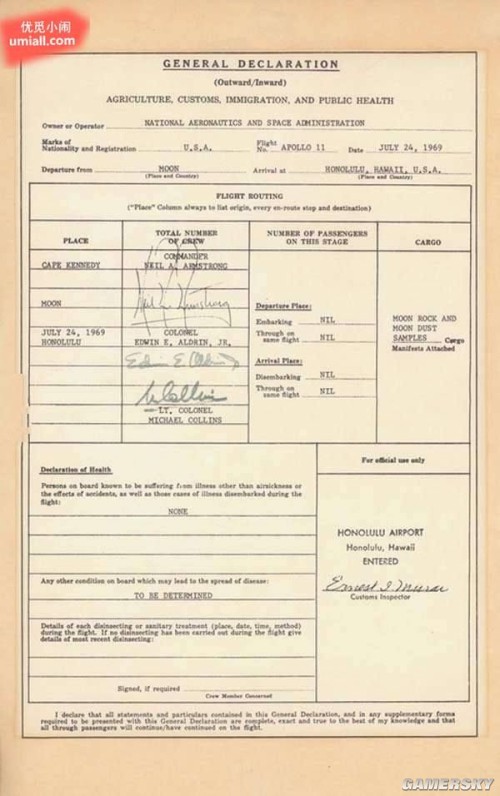 优觅小闹
umiall.com
GENERAL DECLARATION
(Outward/Inward)
AGRICULTURE, CUSTOMS, IMMIGRATION, AND PUBLIC HEALTH
Owner or Operator NATIONAL AERONAUTICS AND SPACE ADMINISTRATION
Marks of Nationality and Registration U.S.A. Flight No. APOLLO 11 Date JULY 24, 1969
Departure from MOON Arrival at HONOLULU, HAWAII, U.S.A.
(Place and Country) (Place and Country)
FLIGHT ROUTING
("Place" Column always to list origin, every en-route stop and destination)
PLACE
TOTAL NUMBER OF CREW
NUMBER OF PASSENGERS ON THIS STAGE
CARGO
CAPE KENNEDY
COMMANDER
NEIL A. ARMSTRONG
MOON
Neil A. Armstrong
JULY 24, 1969
HONOLULU
COLONEL
EDWIN E. ALDRIN, JR.
Edwin E. Aldrin Jr.
M Collins
LT. COLONEL
MICHAEL COLLINS
Departure Place:
Embarking NIL
Through on same flight NIL
Arrival Place:
Disembarking NIL
Through on same flight NIL
MOON ROCK AND
MOON DUST
SAMPLES Cargo
Manifests Attached
Declaration of Health
Persons on board known to be suffering from illness other than airsickness or
the effects of accidents, as well as those cases of illness disembarked during the
flight:
NONE
Any other condition on board which may lead to the spread of disease:
TO BE DETERMINED
Details of each disinsecting or sanitary treatment (place, date, time, method)
during the flight. If no disinsecting has been carried out during the flight give
details of most recent disinsecting:
Signed, if required
Crew Member Concerned
For official use only
HONOLULU AIRPORT
Honolulu, Hawaii
ENTERED
Ernest I. Murai
Customs Inspector
I declare that all statements and particulars contained in this General Declaration, and in any supplementary forms
required to be presented with this General Declaration are complete, exact and true to the best of my knowledge and that
all through passengers will continue/have continued on the flight.
GAMERSKY